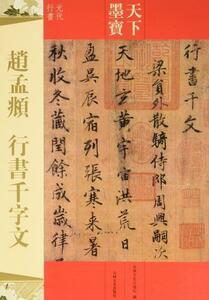 天下
墨寶
元代
行書
趙孟頫 行書千字文
行書千文
梁員外散騎侍郎周興嗣次
天地玄黃宇宙洪荒日
盈昃辰宿列張寒来暑
秋收冬藏閏餘成歲律